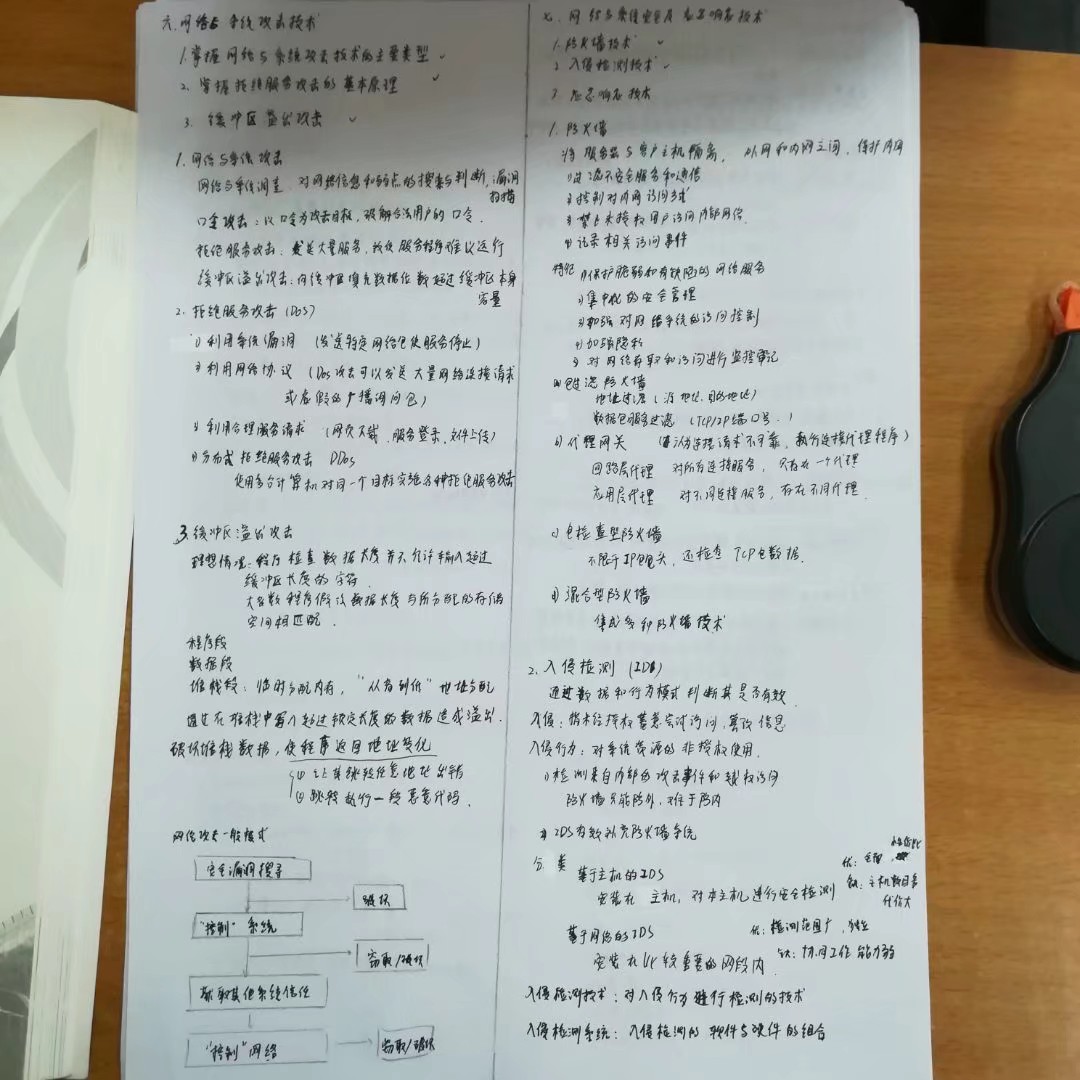 六.网络与系统攻击技术
1.掌握网络与系统攻击技术的主要类型 ✓
2.掌握拒绝服务攻击的基本原理 ✓
3.缓冲区溢出攻击 ✓
1.网络与系统攻击
网络与系统调查:对网络信息和弱点的搜索与判断,漏洞
扫描
口令攻击:以口令为攻击目标,破解合法用户的口令.
拒绝服务攻击:发送大量服务,致使服务程序难以运行
缓冲区溢出攻击:向缓冲区填充数据位数超过缓冲区本身
容量
2.拒绝服务攻击(DoS)
1)利用系统漏洞 (发送特定网络包使服务停止)
2)利用网络协议 (Dos攻击可以发送大量网络连接请求
或者虚假的广播询问包)
3)利用合理服务请求 (网页下载、服务登录、文件上传)
4)分布式拒绝服务攻击 DDos
使用多台计算机对同一个目标实施各种拒绝服务攻击
3.缓冲区溢出攻击
理想情况:程序检查数据长度并不允许输入超过
缓冲区长度的字符.
大多数程序假设数据长度与所分配的存储
空间相匹配.
程序段
数据段
堆栈段:临时分配内存,"从高到低"地址分配
通过在堆栈中写入超过预定长度的数据造成溢出.
破坏堆栈数据,使程序返回地址变化
① 让其跳转任意地址出错
② 跳转执行一段恶意代码.
网络攻击一般模式
安全漏洞搜寻
破坏
"控制"系统
窃取/破坏
获取其他系统信任
"控制"网络
窃取/破坏
七.网络与系统安全及应急响应技术
1.防火墙技术 ✓
2.入侵检测技术 ✓
3.应急响应技术
1.防火墙
将服务器与客户主机隔离,外网和内网之间,保护内网
1)过滤不安全服务和通信
2)控制对内网访问方式
3)禁止未授权用户访问内部网络.
4)记录相关访问事件
特征 1)保护脆弱和有缺陷的网络服务
2)集中化的安全管理
3)加强对网络系统的访问控制
4)加强隐私
5)对网络存取和访问进行监控审记
a)包过滤防火墙
地址过滤(源地址,目的地址)
数据包服务过滤 (TCP/IP端口号.)
b)代理网关 (认为连接请求不可靠,执行连接代理程序)
回路层代理 对所有连接服务,只存在一个代理
应用层代理 对不同连接服务,存在不同代理.
c)包检查型防火墙
不限于IP包头,还检查TCP包数据.
d)混合型防火墙
集成多种防火墙技术
2.入侵检测(IDS)
通过数据和行为模式判断其是否有效.
入侵:指未经授权蓄意尝试访问,篡改信息
入侵行为:对系统资源的非授权使用.
1)检测来自内部的攻击事件和越权访问
防火墙只能防外,难于防内
2)IDS有效补充防火墙系统
分类
基于主机的IDS
安装在主机,对本主机进行安全检测
优:
缺:主机数目多
代价大
基于网络的IDS
优:检测范围广,独立
安装在比较重要的网段内.
缺:协同工作能力弱
入侵检测技术:对入侵行为进行检测的技术
入侵检测系统:入侵检测的软件与硬件的组合